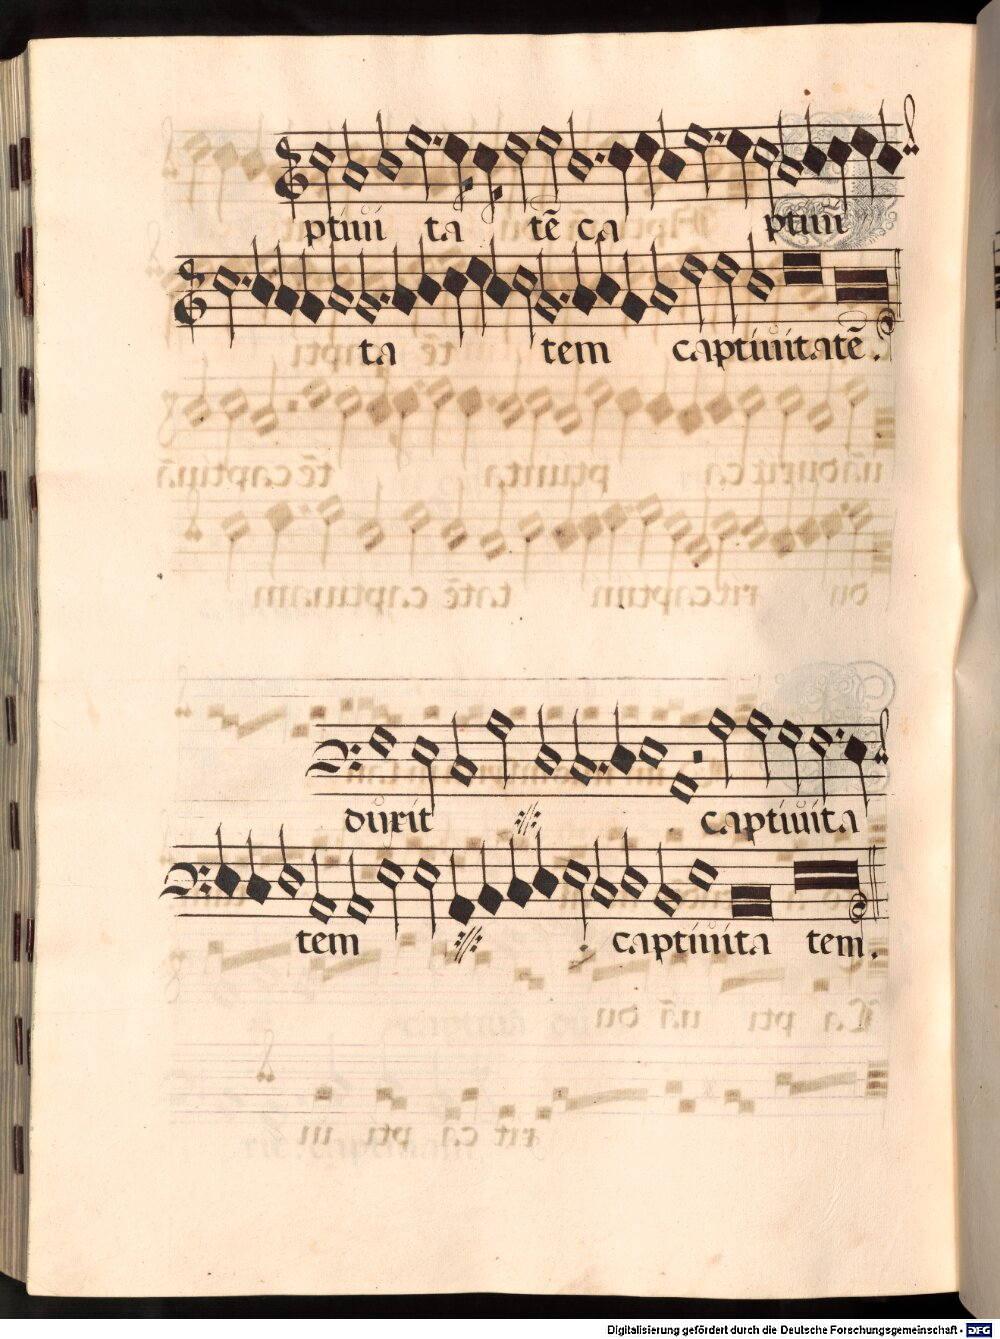 ptiui ta tē ca ptiui
ta tem captiuitatē.
duxit captiuita
tem captiuita tem.
Digitalisierung gefördert durch die Deutsche Forschungsgemeinschaft - DFG